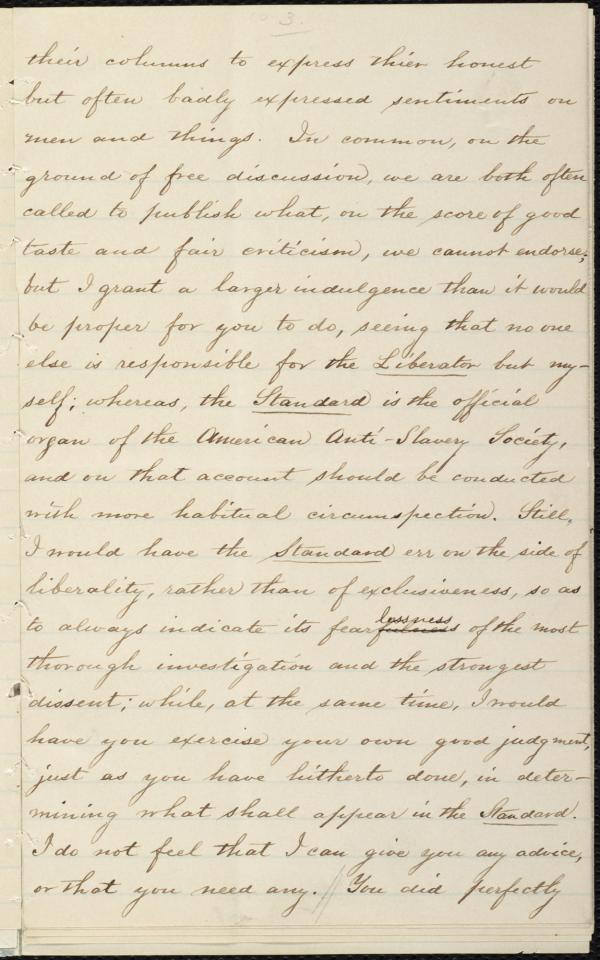 3.
their columns to express thier honest
but often badly expressed sentiments on
men and things. In common, on the
ground of free discussion, we are both often
called to publish what, on the score of good
taste and fair criticism, we cannot endorse;
but I grant a larger indulgence than it would
be proper for you to do, seeing that no one
else is responsible for the Liberator but my-
self; whereas, the Standard is the official
organ of the American Anti-Slavery Society,
and on that account should be conducted
with more habitual circumspection. Still,
I would have the Standard err on the side of
liberality, rather than of exclusiveness, so as
lessness
to always indicate its fearfulness of the most
thorough investigation and the strongest
dissent; while, at the same time, I would
have you exercise your own good judgment,
just as you have hitherto done, in deter-
mining what shall appear in the Standard.
I do not feel that I can give you any advice,
or that you need any. // You did perfectly